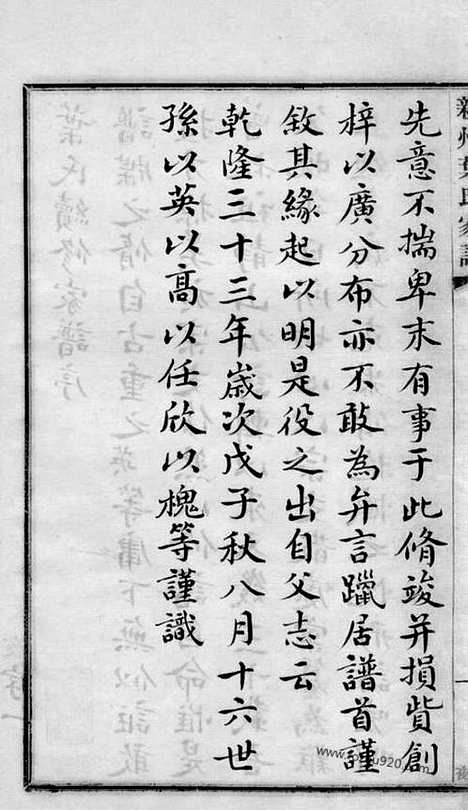 新州葉氏家譜
先意不揣卑末有事于此脩竣并損貲創
梓以廣分布亦不敢為弁言躐居譜首謹
敘其緣起以明是役之出自父志云
乾隆三十三年歲次戊子秋八月十六世
孫以英以高以任欣以槐等謹識